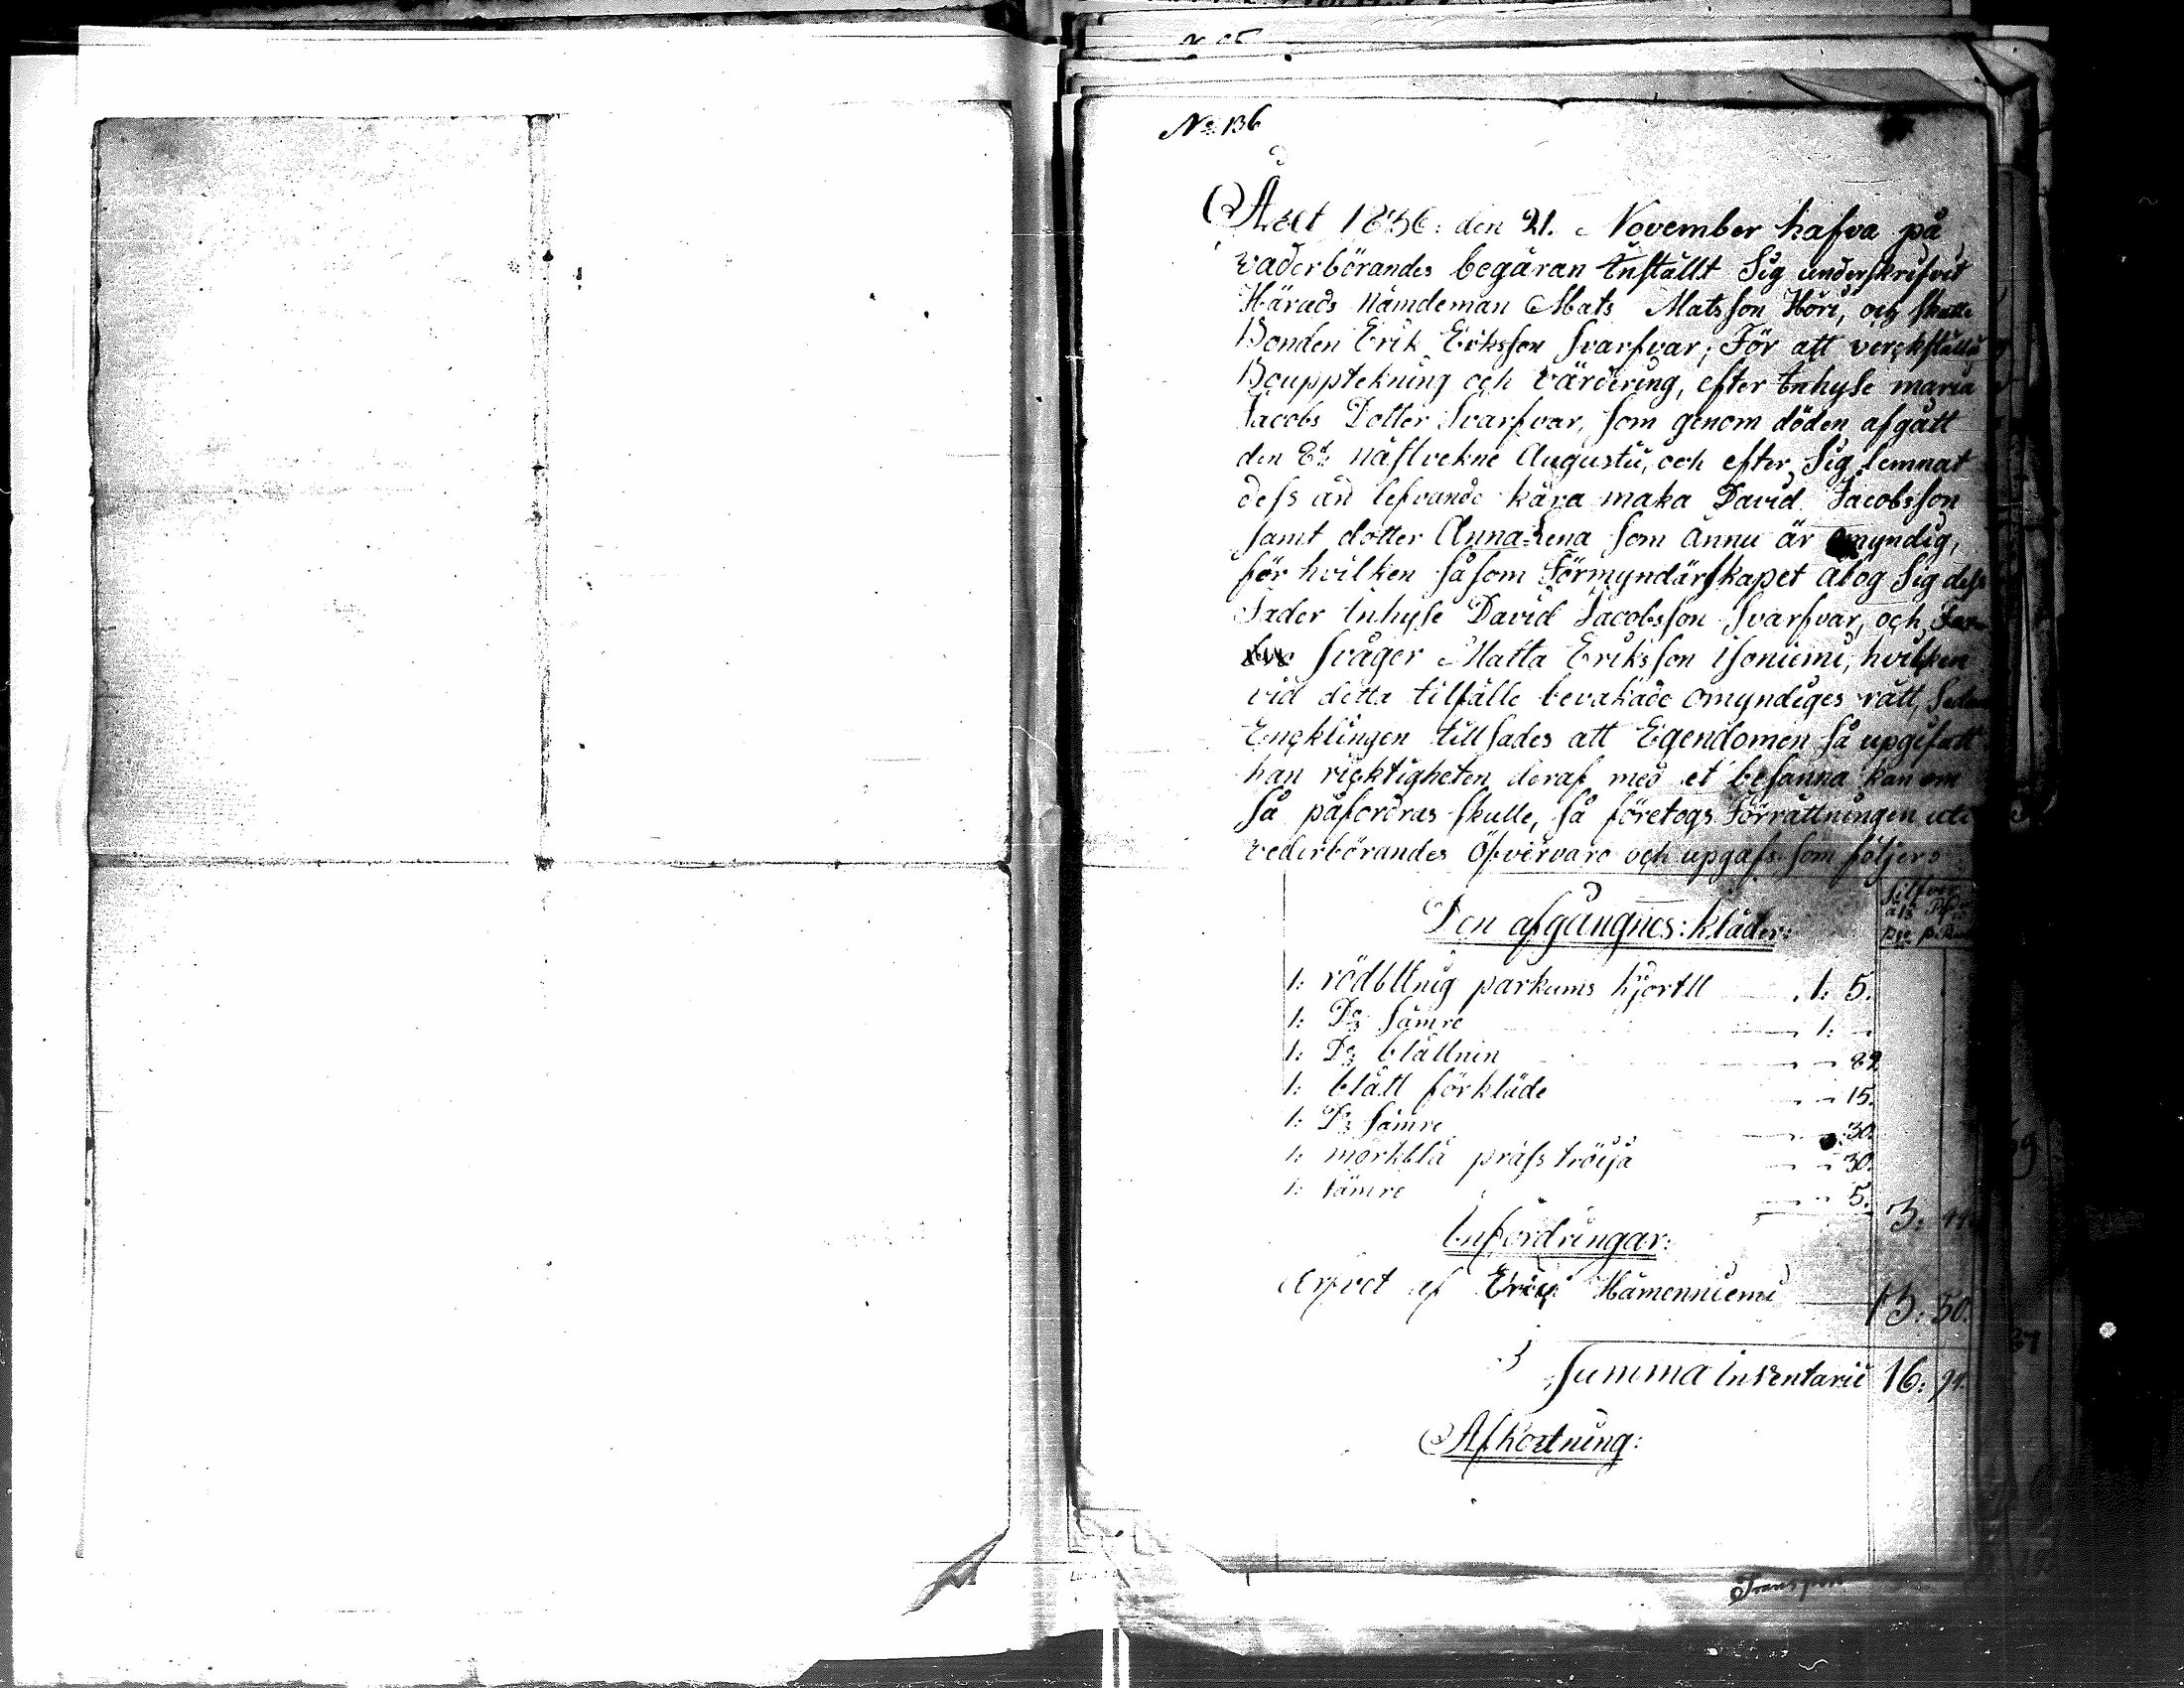 No 136
Året 1836: den 21. November hafva på
vaderbörandes begäran Instält Sig underskrifvit
Härads nämdeman Mats Matsson Höri, och skatte
Bonden Erik Eriksson Svarfvar; För att verckställa
Boupptekning och värdering, efter Inhyse maria
Jacobs Dotter Svarfvar, som genom döden afgått
den näslvekne Augusti, och efter Sig lemnat
dess än lefvande kära maka David Jacobsson
samt dotter Anna Lena som ännu är omyndig,
för hvilken såsom Förmyndärskapet åtog Sig dess
Fader Inhyse David Jacobsson Svarfvar, och
svåger Matta Eriksson Isoniemi, hvilken
vid detta tilfälle bevakade omyndiges rätt, Sedan
Encklingen tillsades att Egendomen så upgifva att
han ricktigheten deraf med et besanna kan om
så påfordras skulle, så företogs Förrättningen uti
vederbörandes öfvervaro och upgafs som följer:
Silfver
Den afgångnes: kläder:
1: rödbllnig parkums kjortll 1: 5.
1: Do sämre 1: —
1: Do blållnin 29
1: blått förkläde 15.
1: Do sämre 30.
1: mörkblå präss tröija 30.
1: sämre 5.
3: 44
Infordringar:
Arfvet af Eric Hämenniemi 13: 50.
Summa Inventarii 16: 94.
Afkortning:
Transport